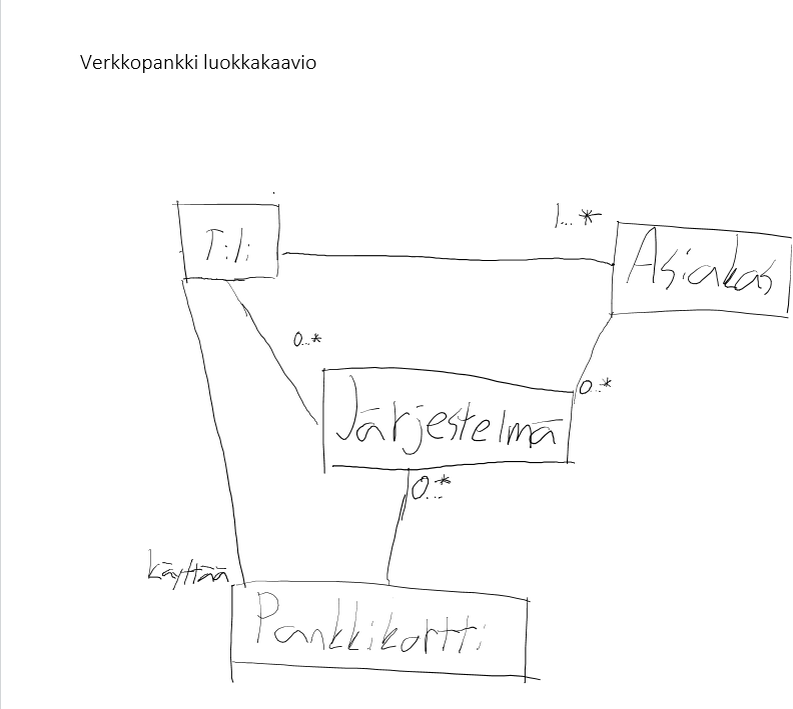 Verkkopankki luokkakaavio
1...*
Tili
Asiakas
0..*
0..*
Järjestelmä
0...*
käyttää
Pankkikortti